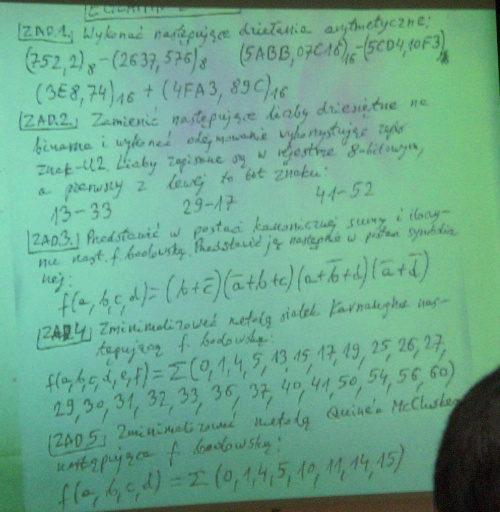 ZAD.1. Wykonać następujące działania arytmetyczne:
(752,2)₈ - (2637,576)₈ (5ABB,07C16)₁₆ - (5CD4,10F3)₁₆
(3E8,74)₁₆ + (4FA3,89C)₁₆
ZAD.2. Zamienić następujące liczby dziesiętne na
binarne i wykonać odejmowanie wykorzystując zapis
znak-U2. Liczby zapisane są w rejestrze 8-bitowym,
a pierwszy z lewej to bit znaku:
13-33 29-17 41-52
ZAD.3. Przedstawić w postaci kanonicznej sumy i iloczy-
nu nast. f. boolowską. Przedstawić ją następnie w postaci symbolicz
nej:
f(a,b,c,d)=(b+c̅)(a̅+b+c)(a+b̅+d)(a̅+d̅)
ZAD.4 Zminimalizować metodą siatek Karnaugha nas-
tępującą f. boolowską:
f(a,b,c,d,e,f)=Σ(0,1,4,5,13,15,17,19,25,26,27,
29,30,31,32,33,36,37,40,41,50,54,56,60)
ZAD.5 Zminimalizować metodą Quine'a McCluskey
następującą f. boolowską:
f(a,b,c,d) = Σ(0,1,4,5,10,11,14,15)